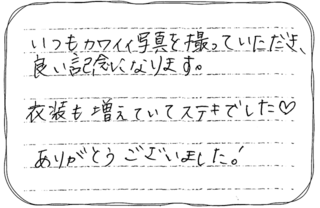 いつもカワイイ写真を撮っていただき、
良い記念になります。
衣装も増えていてステキでした♡
ありがとうございました！